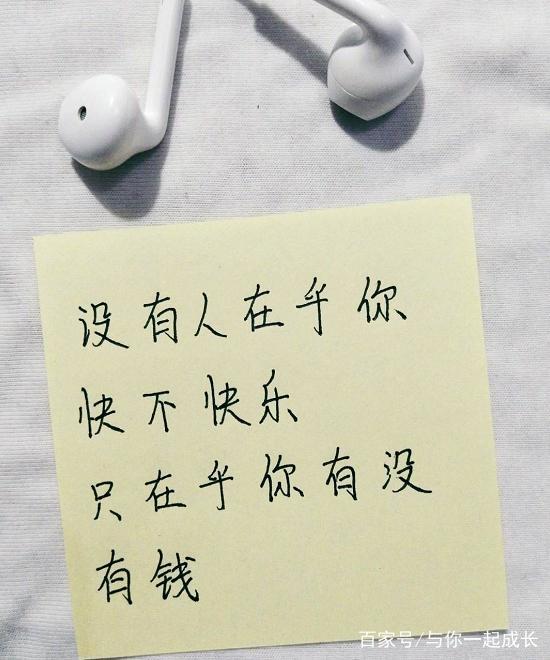 没有人在乎你
快不快乐
只在乎你有没
有钱
百家号/与你一起成长